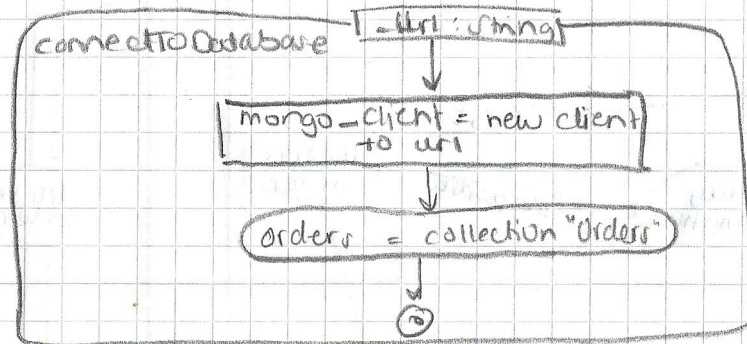 connectToDatabase
_url : string
mongo_client = new client
to url
orders = collection "Orders"
e